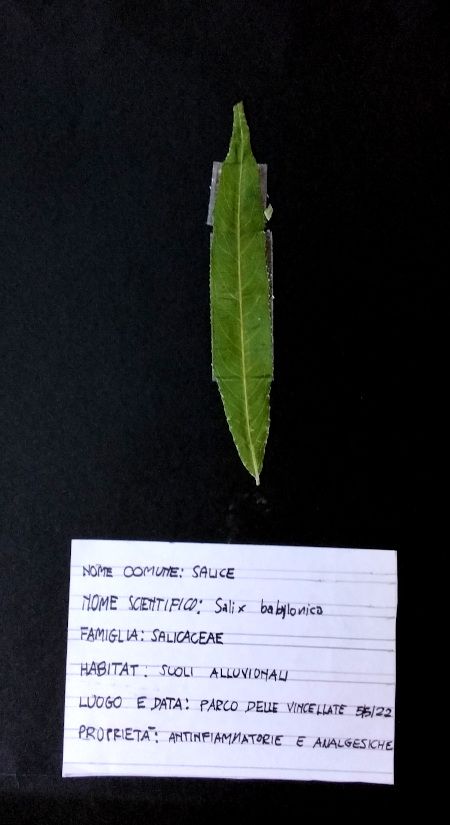 NOME COMUNE: SALICE
NOME SCIENTIFICO: Salix babylonica
FAMIGLIA: SALICACEAE
HABITAT: SUOLI ALLUVIONALI
LUOGO E DATA: PARCO DELLE VINCELLATE 5/5/22
PROPRIETÀ: ANTINFIAMMATORIE E ANALGESICHE